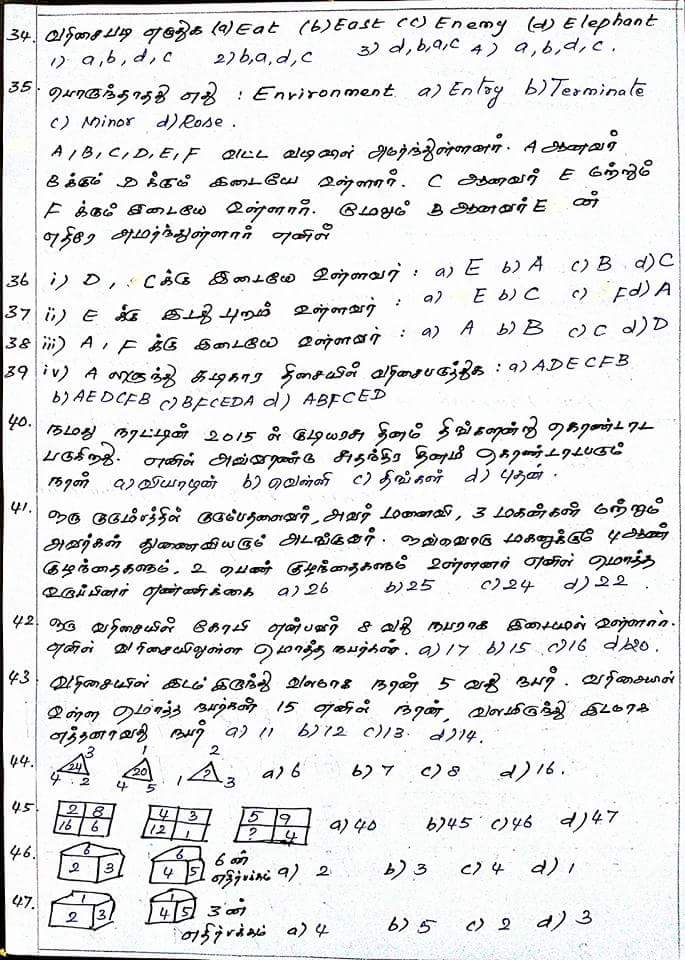 34. வரிசைபடி எழுதுக (a) Eat (b) East (c) Enemy (d) Elephant
1) a,b,d,c 2) b,a,d,c 3) d,b,a,c 4) a,b,d,c.
35. பொருந்தாதது எது : Environment a) Entry b) Terminate
c) Minor d) Rose.
A, B, C, D, E, F வட்ட வடிவில் அமர்ந்துள்ளனர். A ஆனவர்
B க்கும் D க்கும் இடையே உள்ளார். C ஆனவர் E மற்றும்
F க்கும் இடையே உள்ளார். மேலும் B ஆனவர் E ன்
எதிரே அமர்ந்துள்ளார் எனில்
36 i) D, C க்கு இடையே உள்ளவர் : a) E b) A c) B d) C
37 ii) E க்கு இடது புறம் உள்ளவர் : a) E b) C c) F d) A
38 iii) A, F க்கு இடையே உள்ளவர் : a) A b) B c) C d) D
39 iv) A லிருந்து கடிகார திசையில் வரிசைபடுத்துக : a) ADECFB
b) AEDCFB c) BFCEDA d) ABFCED
40. நமது நாட்டின் 2015 ன் குடியரசு தினம் திங்களன்று கொண்டாட
படுகிறது. எனில் அவ்வாண்டு சுதந்திர தினம் கொண்டாடபடும்
நாள் a) வியாழன் b) வெள்ளி c) திங்கள் d) புதன்.
41. ஒரு குடும்பத்தில் குடும்பதலைவர், அவர் மனைவி, 3 மகன்கள் மற்றும்
அவர்கள் துணைவியரும் அடங்குவர். ஒவ்வொரு மகனுக்கும் 4 ஆண்
குழந்தைகளும், 2 பெண் குழந்தைகளும் உள்ளனர் எனில் மொத்த
உறுப்பினர் எண்ணிக்கை a) 26 b) 25 c) 24 d) 22.
42. ஒரு வரிசையில் கோபி என்பவர் 8 வது நபராக இடையில் உள்ளார்.
எனில் வரிசையிலுள்ள மொத்த நபர்கள். a) 17 b) 15 c) 16 d) 20.
43 வரிசையில் இடம் இருந்து வலமாக நான் 5 வது நபர். வரிசையில்
உள்ள மொத்த நபர்கள் 15 எனில் நான், வலமிருந்து இடமாக
எத்தனாவது நபர் a) 11 b) 12 c) 13. d) 14.
44. 3 24 4 2 1 20 4 5 2 ? 1 3 a) 6 b) 7 c) 8 d) 16.
45. 2 8 16 6 4 3 12 1 5 9 ? 4 a) 40 b) 45 c) 46 d) 47
46. 6 2 3 6 4 5 6 ன் எதிர்பக்கம் a) 2 b) 3 c) 4 d) 1
47. 1 2 3 1 4 5 3 ன் எதிர்பக்கம் a) 4 b) 5 c) 2 d) 3